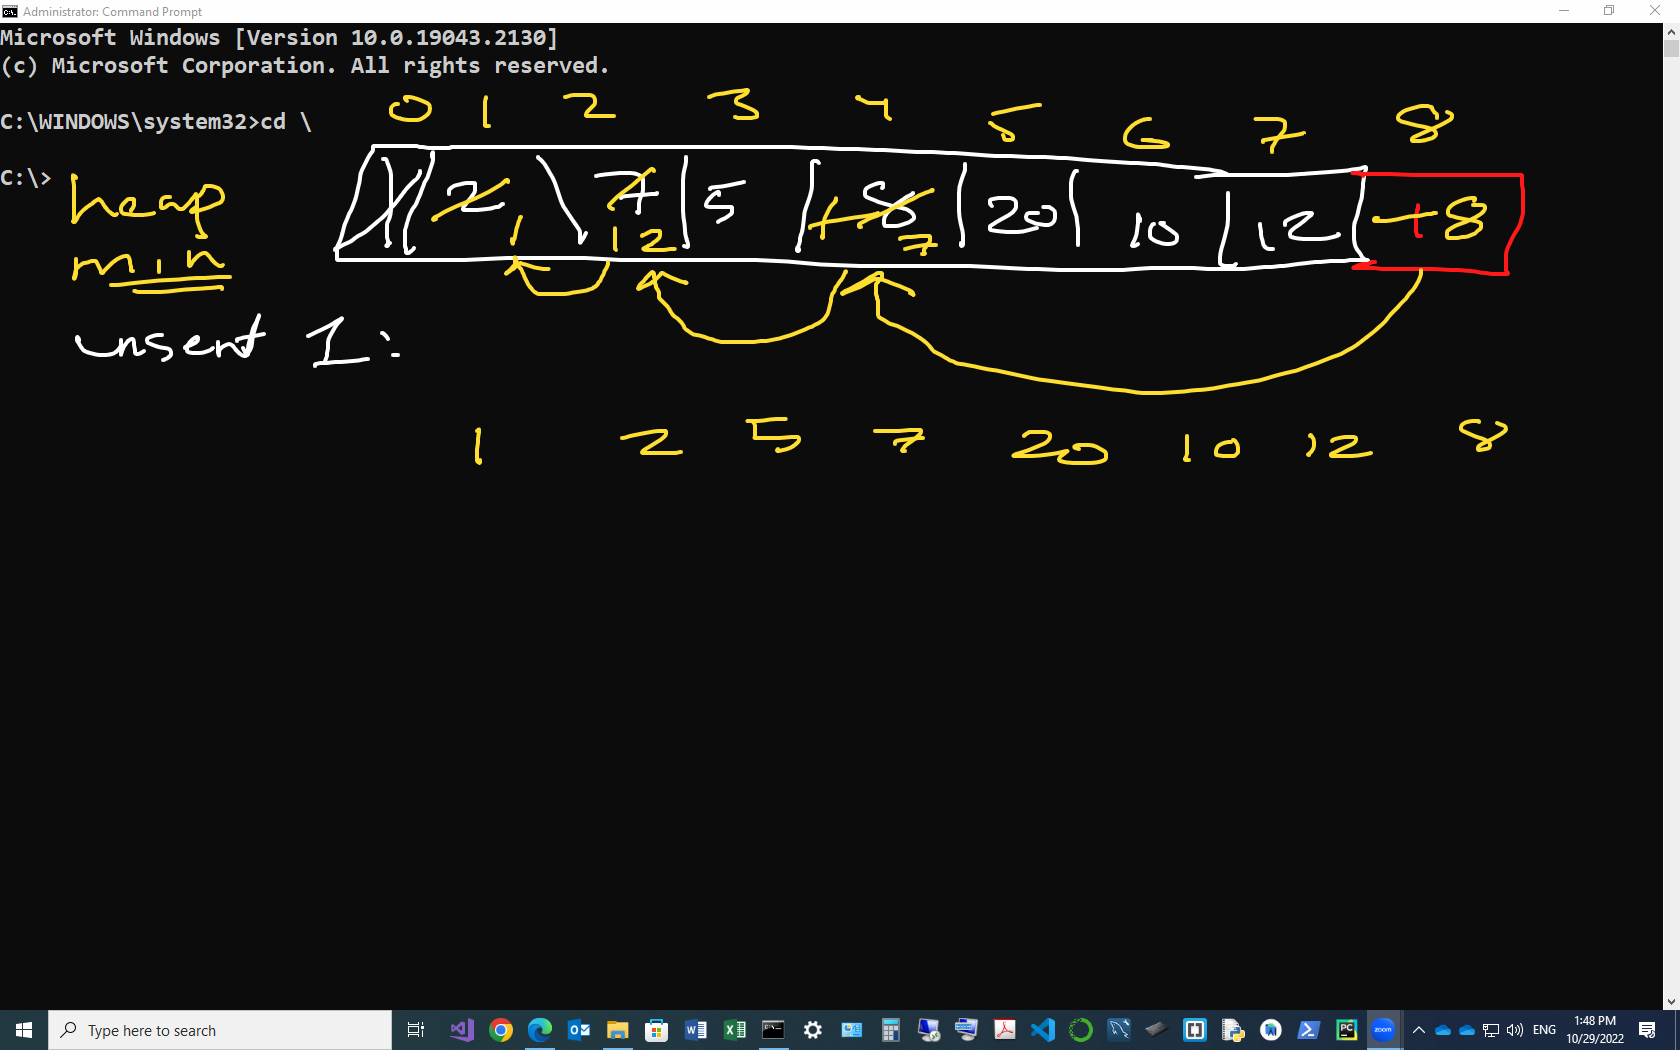 Administrator: Command Prompt
Microsoft Windows [Version 10.0.19043.2130]
(c) Microsoft Corporation. All rights reserved.
0 1 2 3 4 5 6 7 8
C:\WINDOWS\system32>cd \
C:\>
heap
min
2 7 5 8 20 10 12 1 8
1 1 2 1 7
insert 1:
1 2 5 7 20 10 12 8
Type here to search
ENG
1:48 PM
10/29/2022
zoom